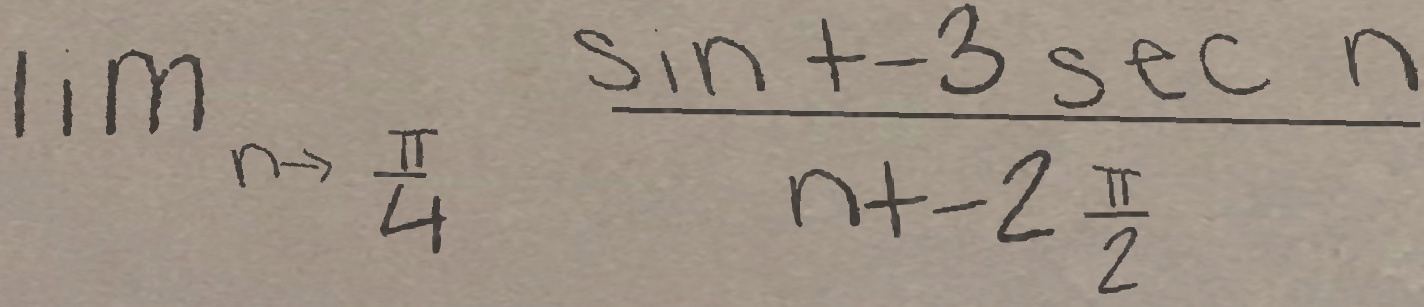 \lim_{n \to \frac{\pi}{4}} \frac{\sin t - 3 \sec n}{nt - 2 \frac{\pi}{2}}